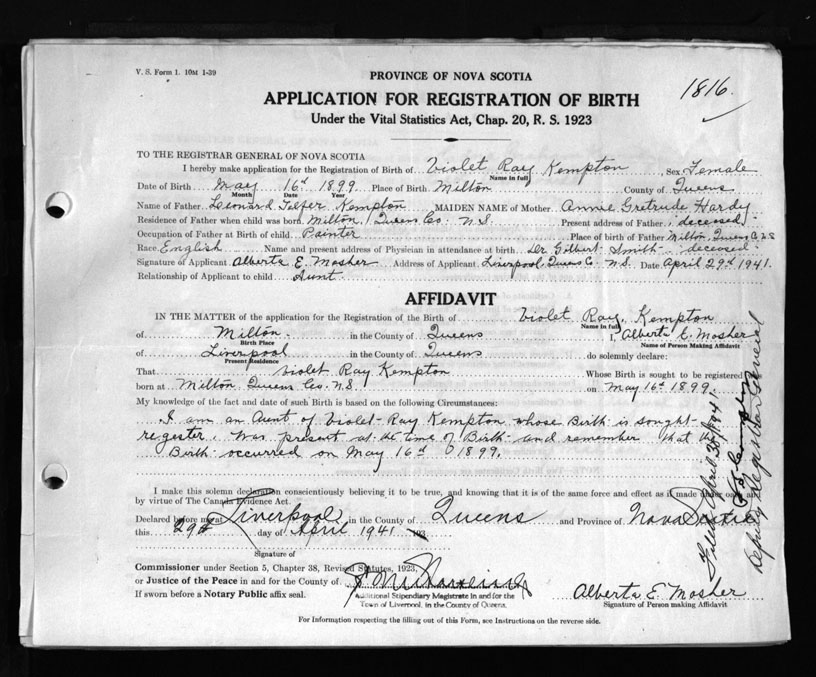 V. S. Form 1. 10M 1-39
PROVINCE OF NOVA SCOTIA
1816.
APPLICATION FOR REGISTRATION OF BIRTH
Under the Vital Statistics Act, Chap. 20, R. S. 1923
TO THE REGISTRAR GENERAL OF NOVA SCOTIA
I hereby make application for the Registration of Birth of Violet Ray Kempton Sex Female
Name in full
Date of Birth May 16th 1899 Place of Birth Milton County of Queens
Month Date Year
Name of Father Leonard Telfer Kempton MAIDEN NAME of Mother Annie Gretrude Hardy
Residence of Father when child was born Milton, Queens Co. N.S. Present address of Father deceased
Occupation of Father at Birth of child Painter Place of birth of Father Milton, Queens Co. N.S.
Race English Name and present address of Physician in attendance at birth Dr Gilbert Smith - deceased
Signature of Applicant Alberta E. Mosher Address of Applicant Liverpool, Queens Co. N.S. Date April 29th 1941.
Relationship of Applicant to child Aunt.
AFFIDAVIT
IN THE MATTER of the application for the Registration of the Birth of Violet Ray Kempton
Name in full
of Milton in the County of Queens I, Alberta E. Mosher
Birth Place Name of Person Making Affidavit
of Liverpool in the County of Queens do solemnly declare:
Present Residence
That Violet Ray Kempton Whose Birth is sought to be registered
born at Milton Queens Co. N.S. on May 16th 1899.
My knowledge of the fact and date of such Birth is based on the following Circumstances:
I am an Aunt of Violet Ray Kempton whose Birth is sought
register, Was present at the time of Birth and remember that the
Birth occurred on May 16th 1899.
I make this solemn declaration conscientiously believing it to be true, and knowing that it is of the same force and effect as if made under oath and
by virtue of The Canada Evidence Act.
Declared before me at Liverpool in the County of Queens and Province of Nova Scotia
this 29th day of April 1941
Signature of
Commissioner under Section 5, Chapter 38, Revised Statutes, 1923,
or Justice of the Peace in and for the County of
If sworn before a Notary Public affix seal.
Additional Stipendiary Magistrate in and for the
Town of Liverpool, in the County of Queens.
Alberta E. Mosher
Signature of Person making Affidavit
For Information respecting the filling out of this Form, see Instructions on the reverse side.
Filed April 1941
Deputy Registrar General